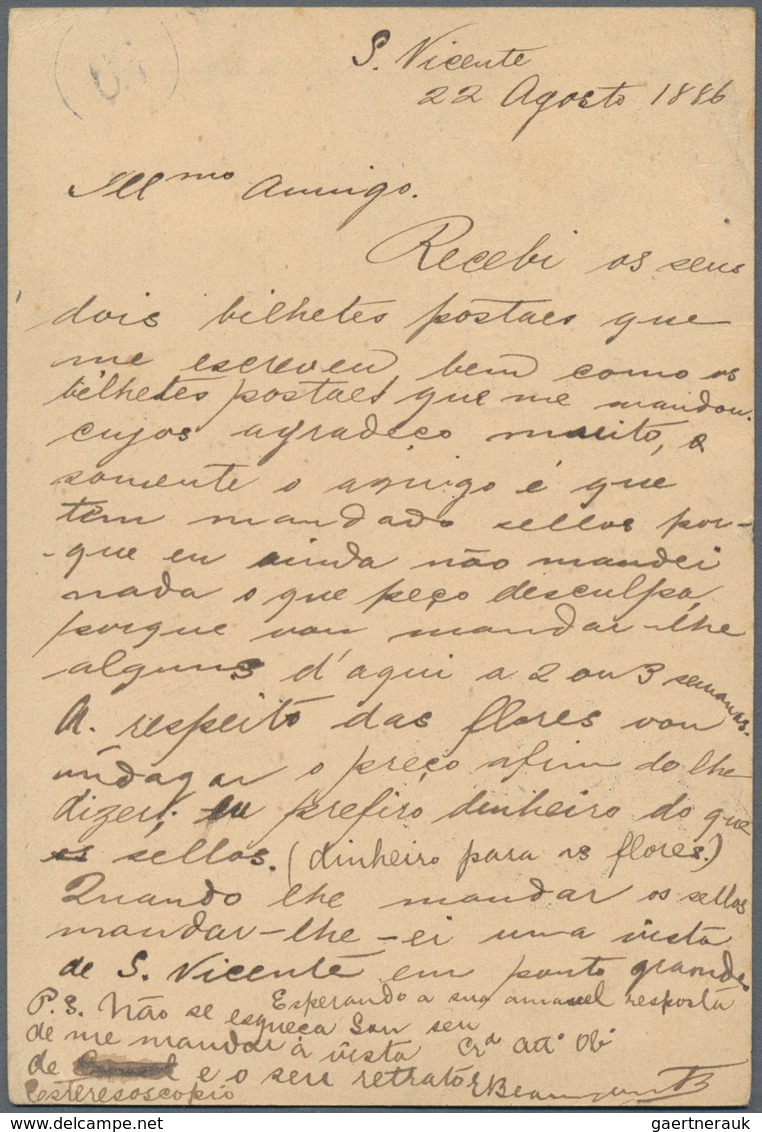 S. Vicente
22 Agosto 1886
Ill.mo Amigo.
Recebi os seus
dois bilhetes postaes que
me escreveu bem como os
bilhetes postaes que me mandou.
cujos agradeço muito, e
somente o amigo é que
têm mandado sellos por-
-que eu ainda não mandei
nada o que peço desculpa,
porque vou mandar-lhe
alguns d'aqui a 2 ou 3 semanas.
A. respeito das flores vou
indagar o preço afim do lhe
dizer; eu prefiro dinheiro do que
os sellos. (dinheiro para as flores.)
Quando lhe mandar os sellos
mandar-lhe-ei uma vista
de S. Vicente em ponto grande
Esperando a sua amavel resposta
Sou seu
Crº attº Obº
P.S. Não se esqueça
de me mandar a vista
de e o seu retrato
esteresoscopio
gaertnerauk